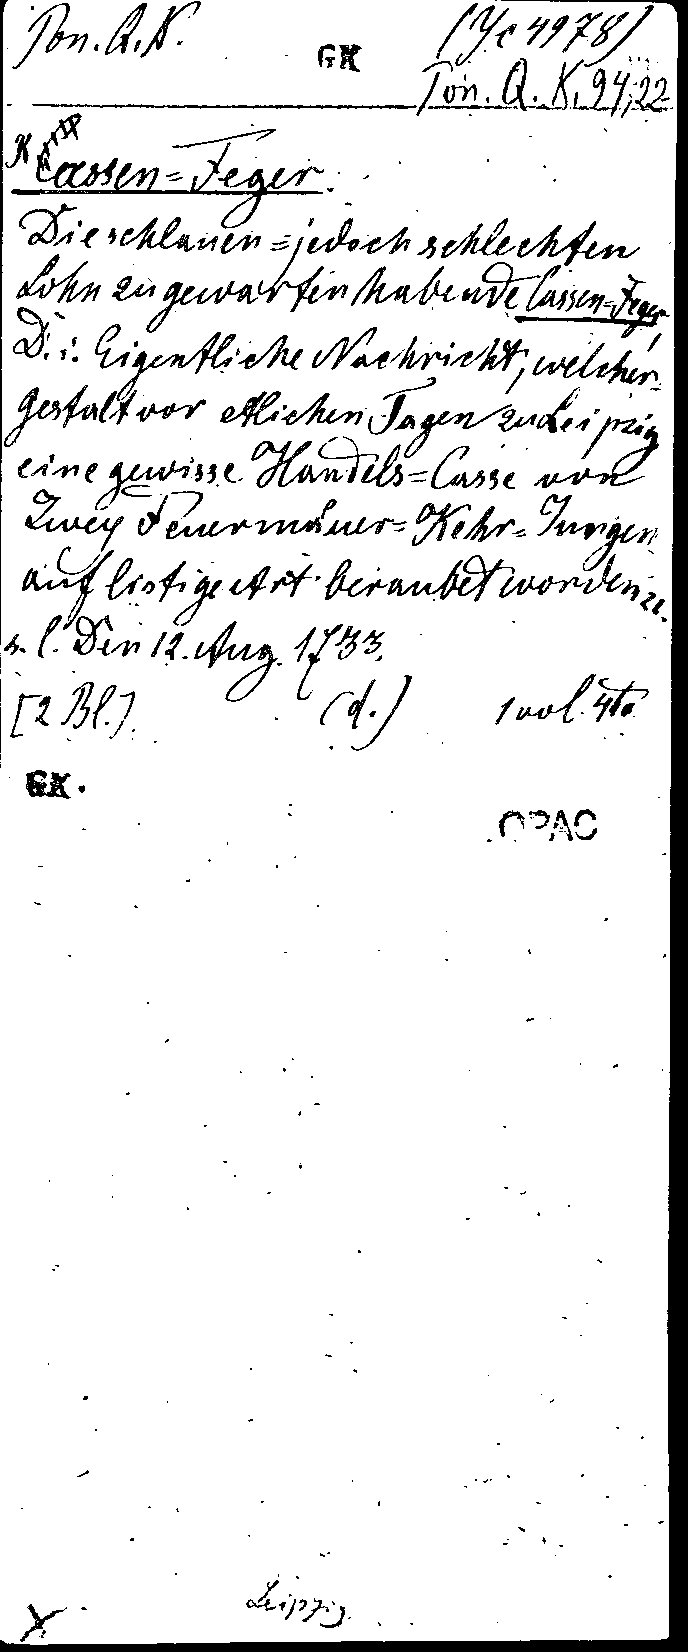 Pon. Q. K.
GK
(Yc 4978)
Pon. Q. K. 94,22
K
Cassen=Feger.
Die schlauen=jedoch schlechten
Lohn zu gewarten habende Cassen=Feger,
D. i. Eigentliche Nachricht, welcher-
gestalt vor etlichen Tagen zu Leipzig
eine gewisse Handels=Casse von
Zwey Feuermäuer=Kehr=Jungen
auf listige Art beraubet worden ꝛc.
s. l. Den 12. Aug. 1733.
[2 Bl.] (d.) 1 vol. 4to
GK.
OPAC
Leipzig
X